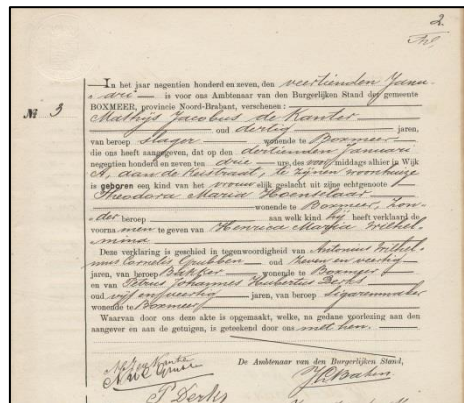 2.
No 3
In het jaar negentien honderd en zeven, den veertienden Janu-
ari is voor ons Ambtenaar van den Burgerlijken Stand der gemeente
BOXMEER, provincie Noord-Brabant, verschenen:
Mathijs Jacobus de Kanter
oud dertig jaren,
van beroep slager wonende te Boxmeer
die ons heeft aangegeven, dat op den dertienden Januari
negentien honderd en zeven ten drie ure, des voormiddags alhier in Wijk
A, aan de Kerstraat, te zijnen woonhuize
is geboren een kind van het vrouwelijk geslacht uit zijne echtgenoote
Theodora Maria Hoenselaar
wonende te Boxmeer, zon-
der beroep aan welk kind hij heeft verklaard de
voornamen te geven van Henrica Maria Wilhel-
mina
Deze verklaring is geschied in tegenwoordigheid van Antonius Wilhel-
mus Cornelis Grubben oud zeven en veertig
jaren, van beroep Bakker wonende te Boxmeer
en van Petrus Johannes Hubertus Derks
oud vijf en veertig jaren, van beroep Sigarenmaker
wonende te Boxmeer
Waarvan door ons deze akte is opgemaakt, welke, na gedane voorlezing aan den
aangever en aan de getuigen, is geteekend door ons, met hen.
De Ambtenaar van den Burgerlijken Stand,
P Derks